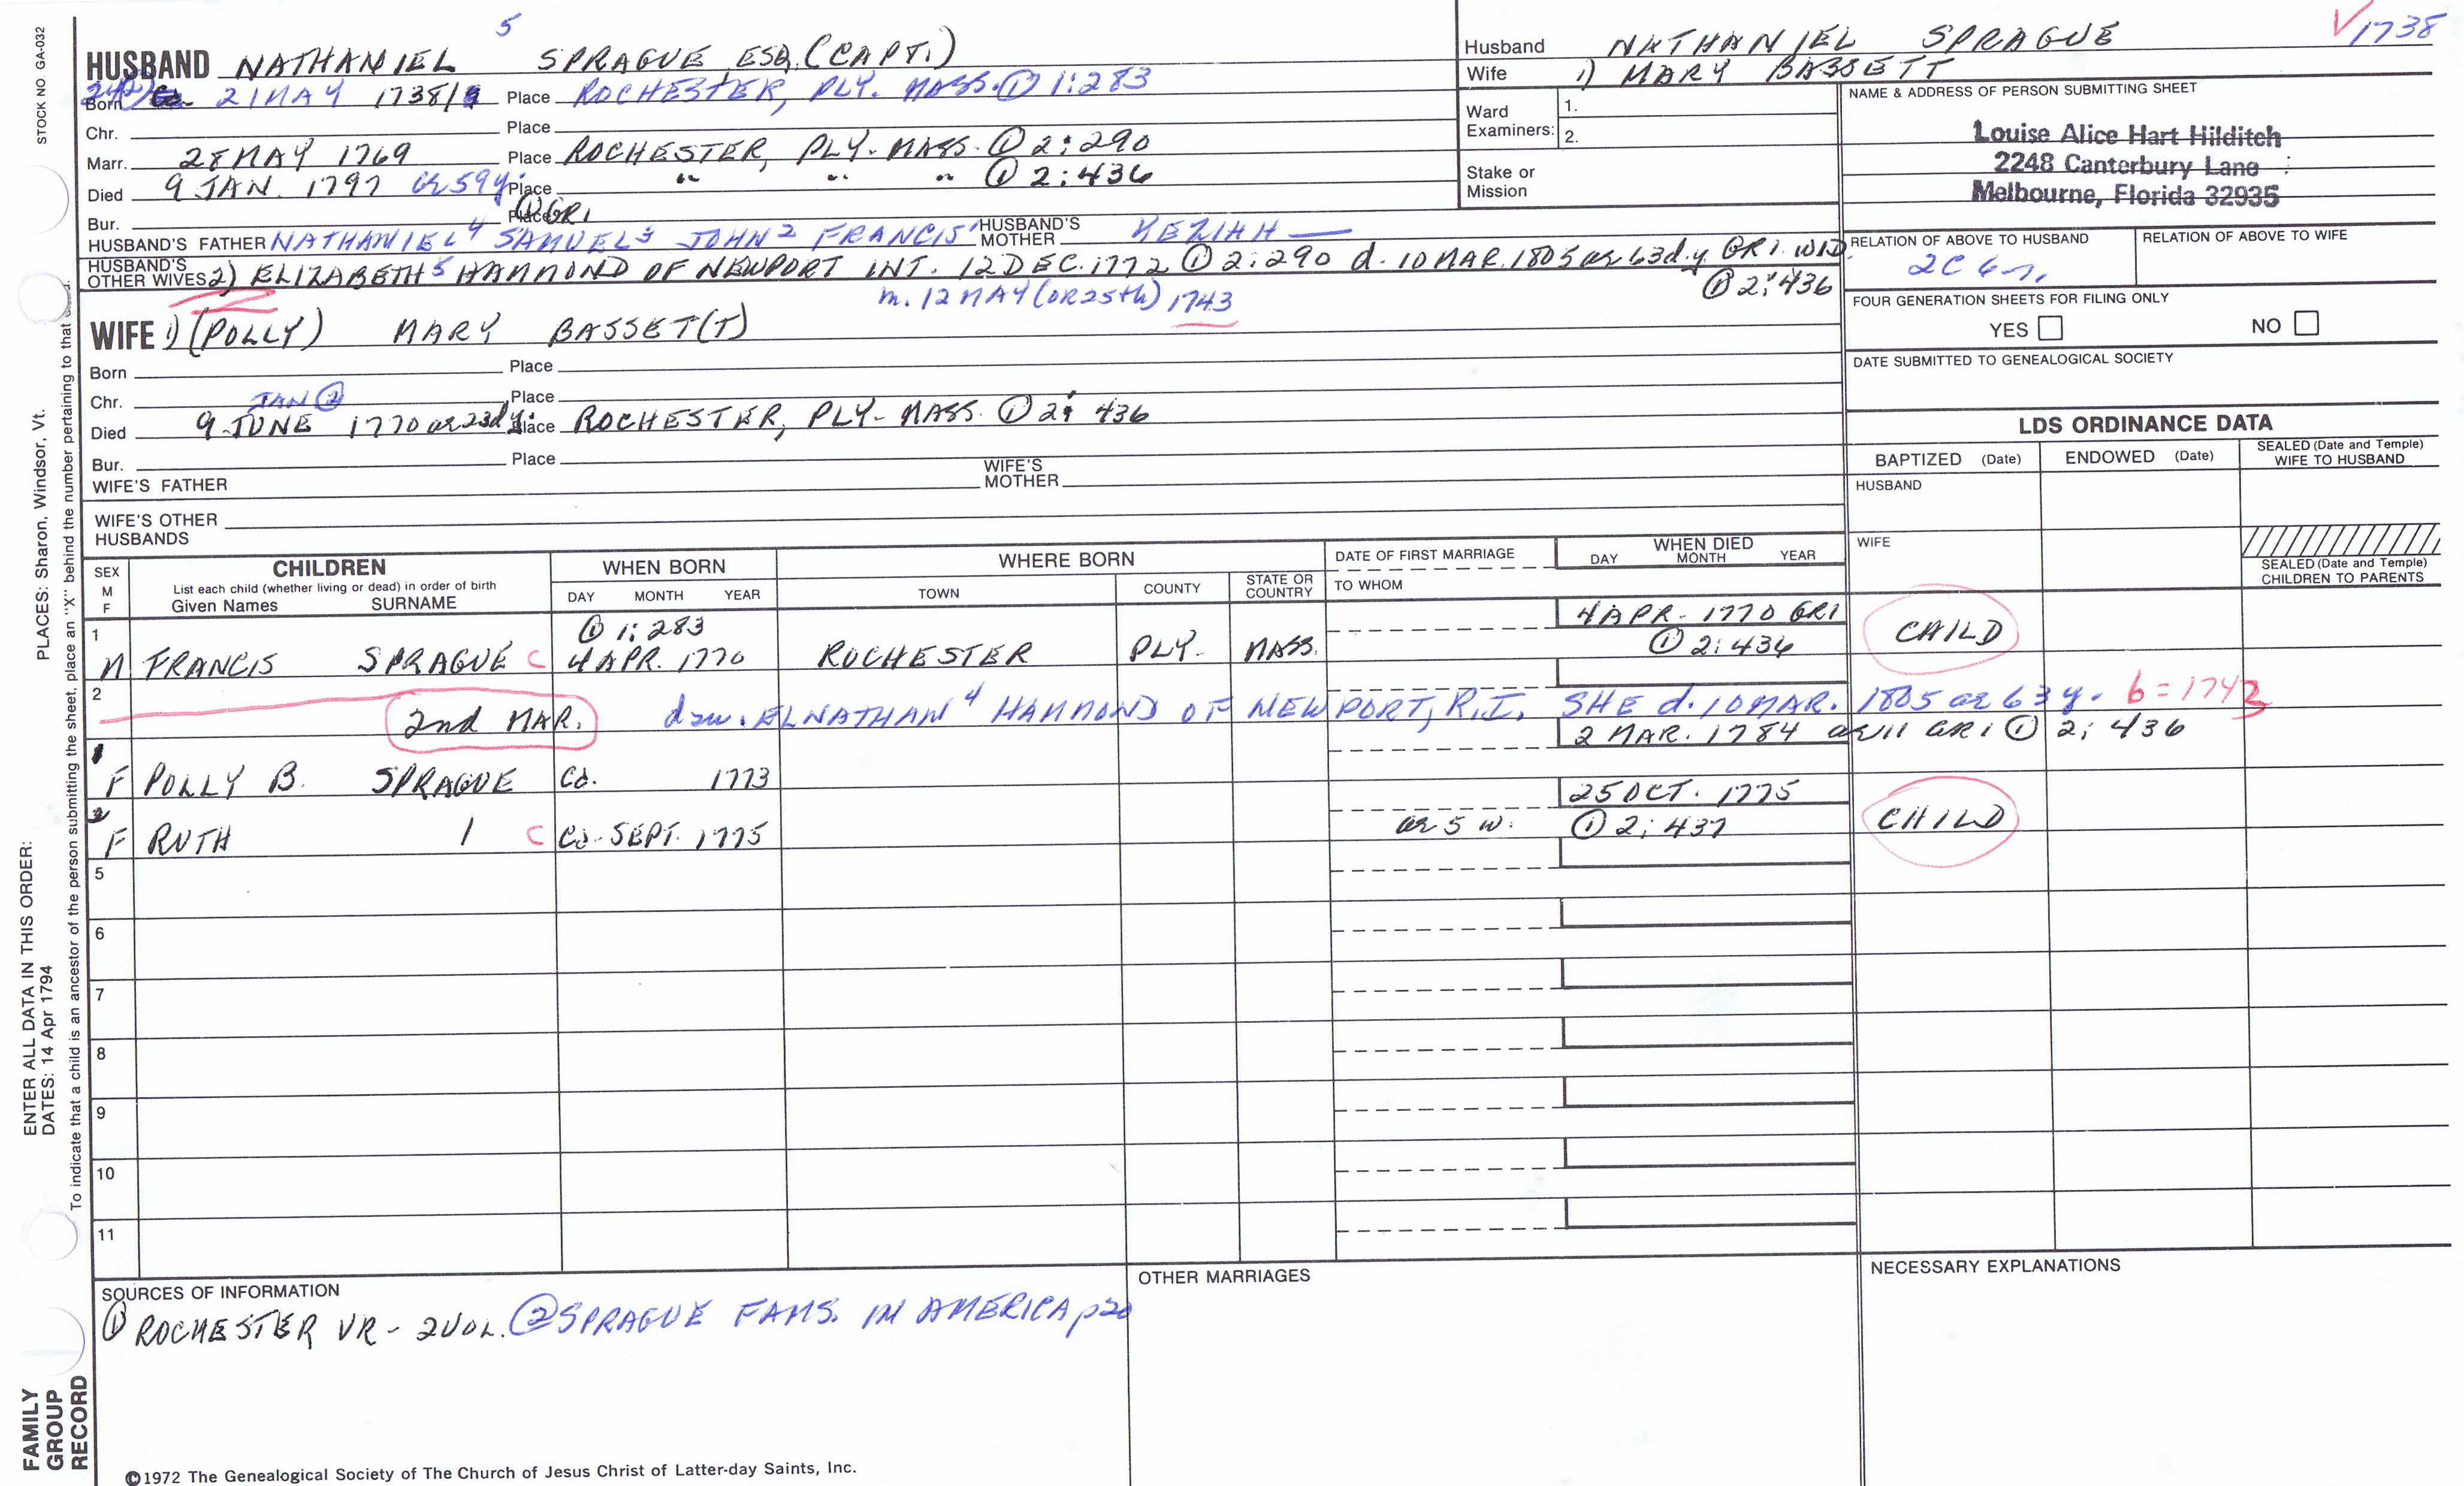 STOCK NO GA-032
PLACES: Sharon, Windsor, Vt.
ENTER ALL DATA IN THIS ORDER:
DATES: 14 Apr 1794
To indicate that a child is an ancestor of the person submitting the sheet, place an "X" behind the number pertaining to that
FAMILY
GROUP
RECORD
5
HUSBAND NATHANIEL SPRAGUE ESQ. (CAPT.)
Born 21 MAY 1738/9 Place ROCHESTER, PLY. MASS. ① 1:283
Chr. Place
Marr. 28 MAY 1769 Place ROCHESTER, PLY. MASS. ① 2:290
Died 9 JAN. 1797 ae 59y. Place " " " ① 2:436
Bur. Place ① GR1
HUSBAND'S FATHER NATHANIEL4 SAMUEL3 JOHN2 FRANCIS1 HUSBAND'S MOTHER KEZIAH —
HUSBAND'S OTHER WIVES 2) ELIZABETH5 HAMMOND OF NEWPORT INT. 12 DEC. 1772 ① 2:290 d. 10 MAR. 1805 ae 63d.y. GR1. WID.
① 2:436
m. 12 MAY (OR 25th) 1743
WIFE 1) (POLLY) MARY BASSET(T)
Born Place
Chr. Place
JAN ②
Died 9 JUNE 1770 ae 23d y. Place ROCHESTER, PLY. MASS. ① 2: 436
Bur. Place
WIFE'S FATHER WIFE'S MOTHER
WIFE'S OTHER HUSBANDS
Husband NATHANIEL SPRAGUE
1738
Wife 1) MARY BASSETT
Ward Examiners: 1.
2.
Stake or Mission
NAME & ADDRESS OF PERSON SUBMITTING SHEET
Louise Alice Hart Hilditch
2248 Canterbury Lane
Melbourne, Florida 32935
RELATION OF ABOVE TO HUSBAND RELATION OF ABOVE TO WIFE
2C 6
FOUR GENERATION SHEETS FOR FILING ONLY
YES NO
DATE SUBMITTED TO GENEALOGICAL SOCIETY
LDS ORDINANCE DATA
BAPTIZED (Date) ENDOWED (Date) SEALED (Date and Temple) WIFE TO HUSBAND
HUSBAND
WIFE
SEALED (Date and Temple) CHILDREN TO PARENTS
SEX M F CHILDREN List each child (whether living or dead) in order of birth Given Names SURNAME
WHEN BORN DAY MONTH YEAR
WHERE BORN TOWN COUNTY STATE OR COUNTRY
DATE OF FIRST MARRIAGE TO WHOM
WHEN DIED DAY MONTH YEAR
1 ① 1:283 4 APR. 1770 GR1
M FRANCIS SPRAGUE C 4 APR. 1770 ROCHESTER PLY. MASS. ① 2:436 CHILD
2 2nd MAR. daw. ELNATHAN4 HAMMOND OF NEWPORT, R.I. SHE d. 10 MAR. 1805 ae 63 y. b=1743
2 MAR. 1784 ae 11 GR1 ① 2: 436
1 F POLLY B. SPRAGUE Ca. 1773
25 OCT. 1775
2 F RUTH C Ca. SEPT. 1775 ae 5 w. ① 2: 437 CHILD
5
6
7
8
9
10
11
SOURCES OF INFORMATION
① ROCHESTER VR - 2 VOL. ② SPRAGUE FAMS. IN AMERICA p20
OTHER MARRIAGES
NECESSARY EXPLANATIONS
©1972 The Genealogical Society of The Church of Jesus Christ of Latter-day Saints, Inc.